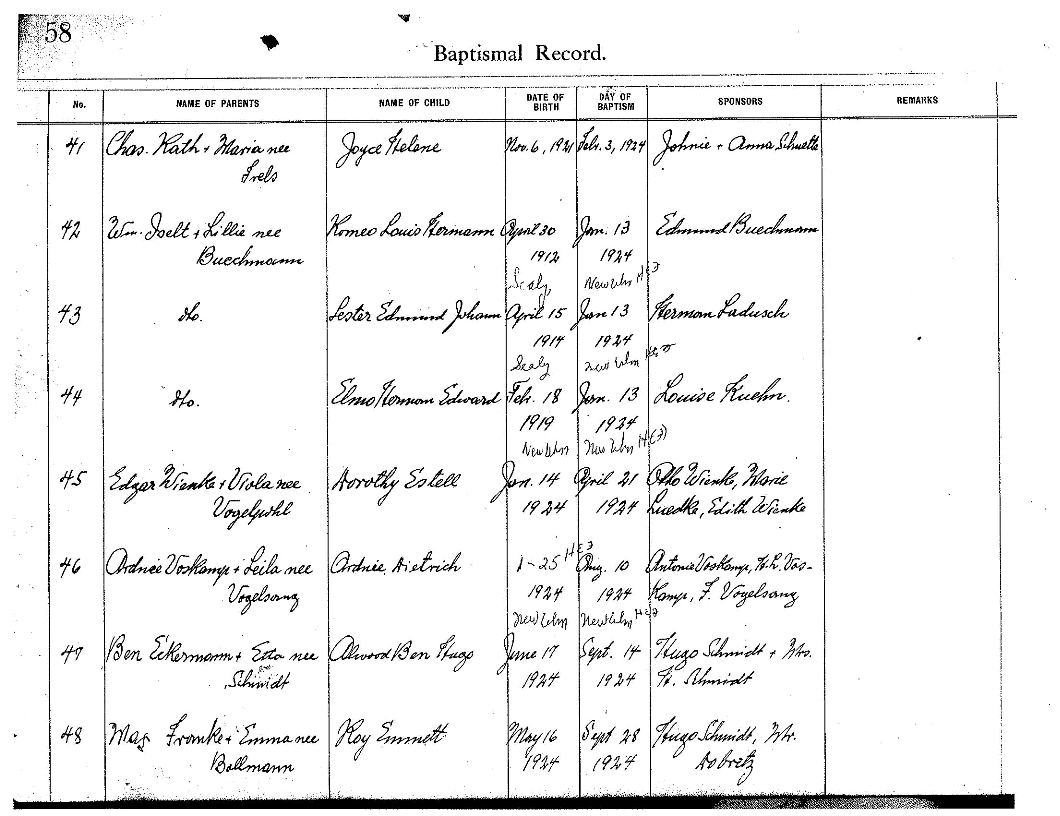 58
Baptismal Record.
No. NAME OF PARENTS NAME OF CHILD DATE OF BIRTH DAY OF BAPTISM SPONSORS REMARKS
41 Chas. Rath + Maria nee Joyce Helene Nov. 6, 1921 Feb. 3, 1924 Johnie + Anna Schuette
Frels
42 Wm. Iselt + Lillie nee Romeo Louis Hermann April 30 Jan. 13 Edmund Buechmann
Buechmann 1912 1924
Sealy New Ulm
43 dto. Lester Edmund Johann April 15 Jan 13 Herman Ladusch
1914 1924
Sealy New Ulm
44 dto. Elmo Herman Edward Feb. 18 Jan. 13 Louise Kuehn.
1919 1924
New Ulm New Ulm
45 Edgar Wienke + Viola nee Dorothy Estell Jan. 14 April 21 Otto Wienke, Marie
Vogelpohl 1924 1924 Luedke, Edith Wienke
46 Ardnee Voskamp + Leila nee Ardnee Dietrich 1-25 Aug. 10 Antonie Voskamp, H. L. Vos-
Vogelsang 1924 1924 Kamp, F. Vogelsang
New Ulm New Ulm
47 Ben Eckermann + Etta nee Alwood Ben Hugo June 17 Sept. 14 Hugo Schmidt + Mrs.
Schmidt 1924 1924 H. Schmidt
48 Max Franke + Emma nee Roy Emmett May 16 Sept 28 Hugo Schmidt, Mr.
Bollmann 1924 1924 Dobretz